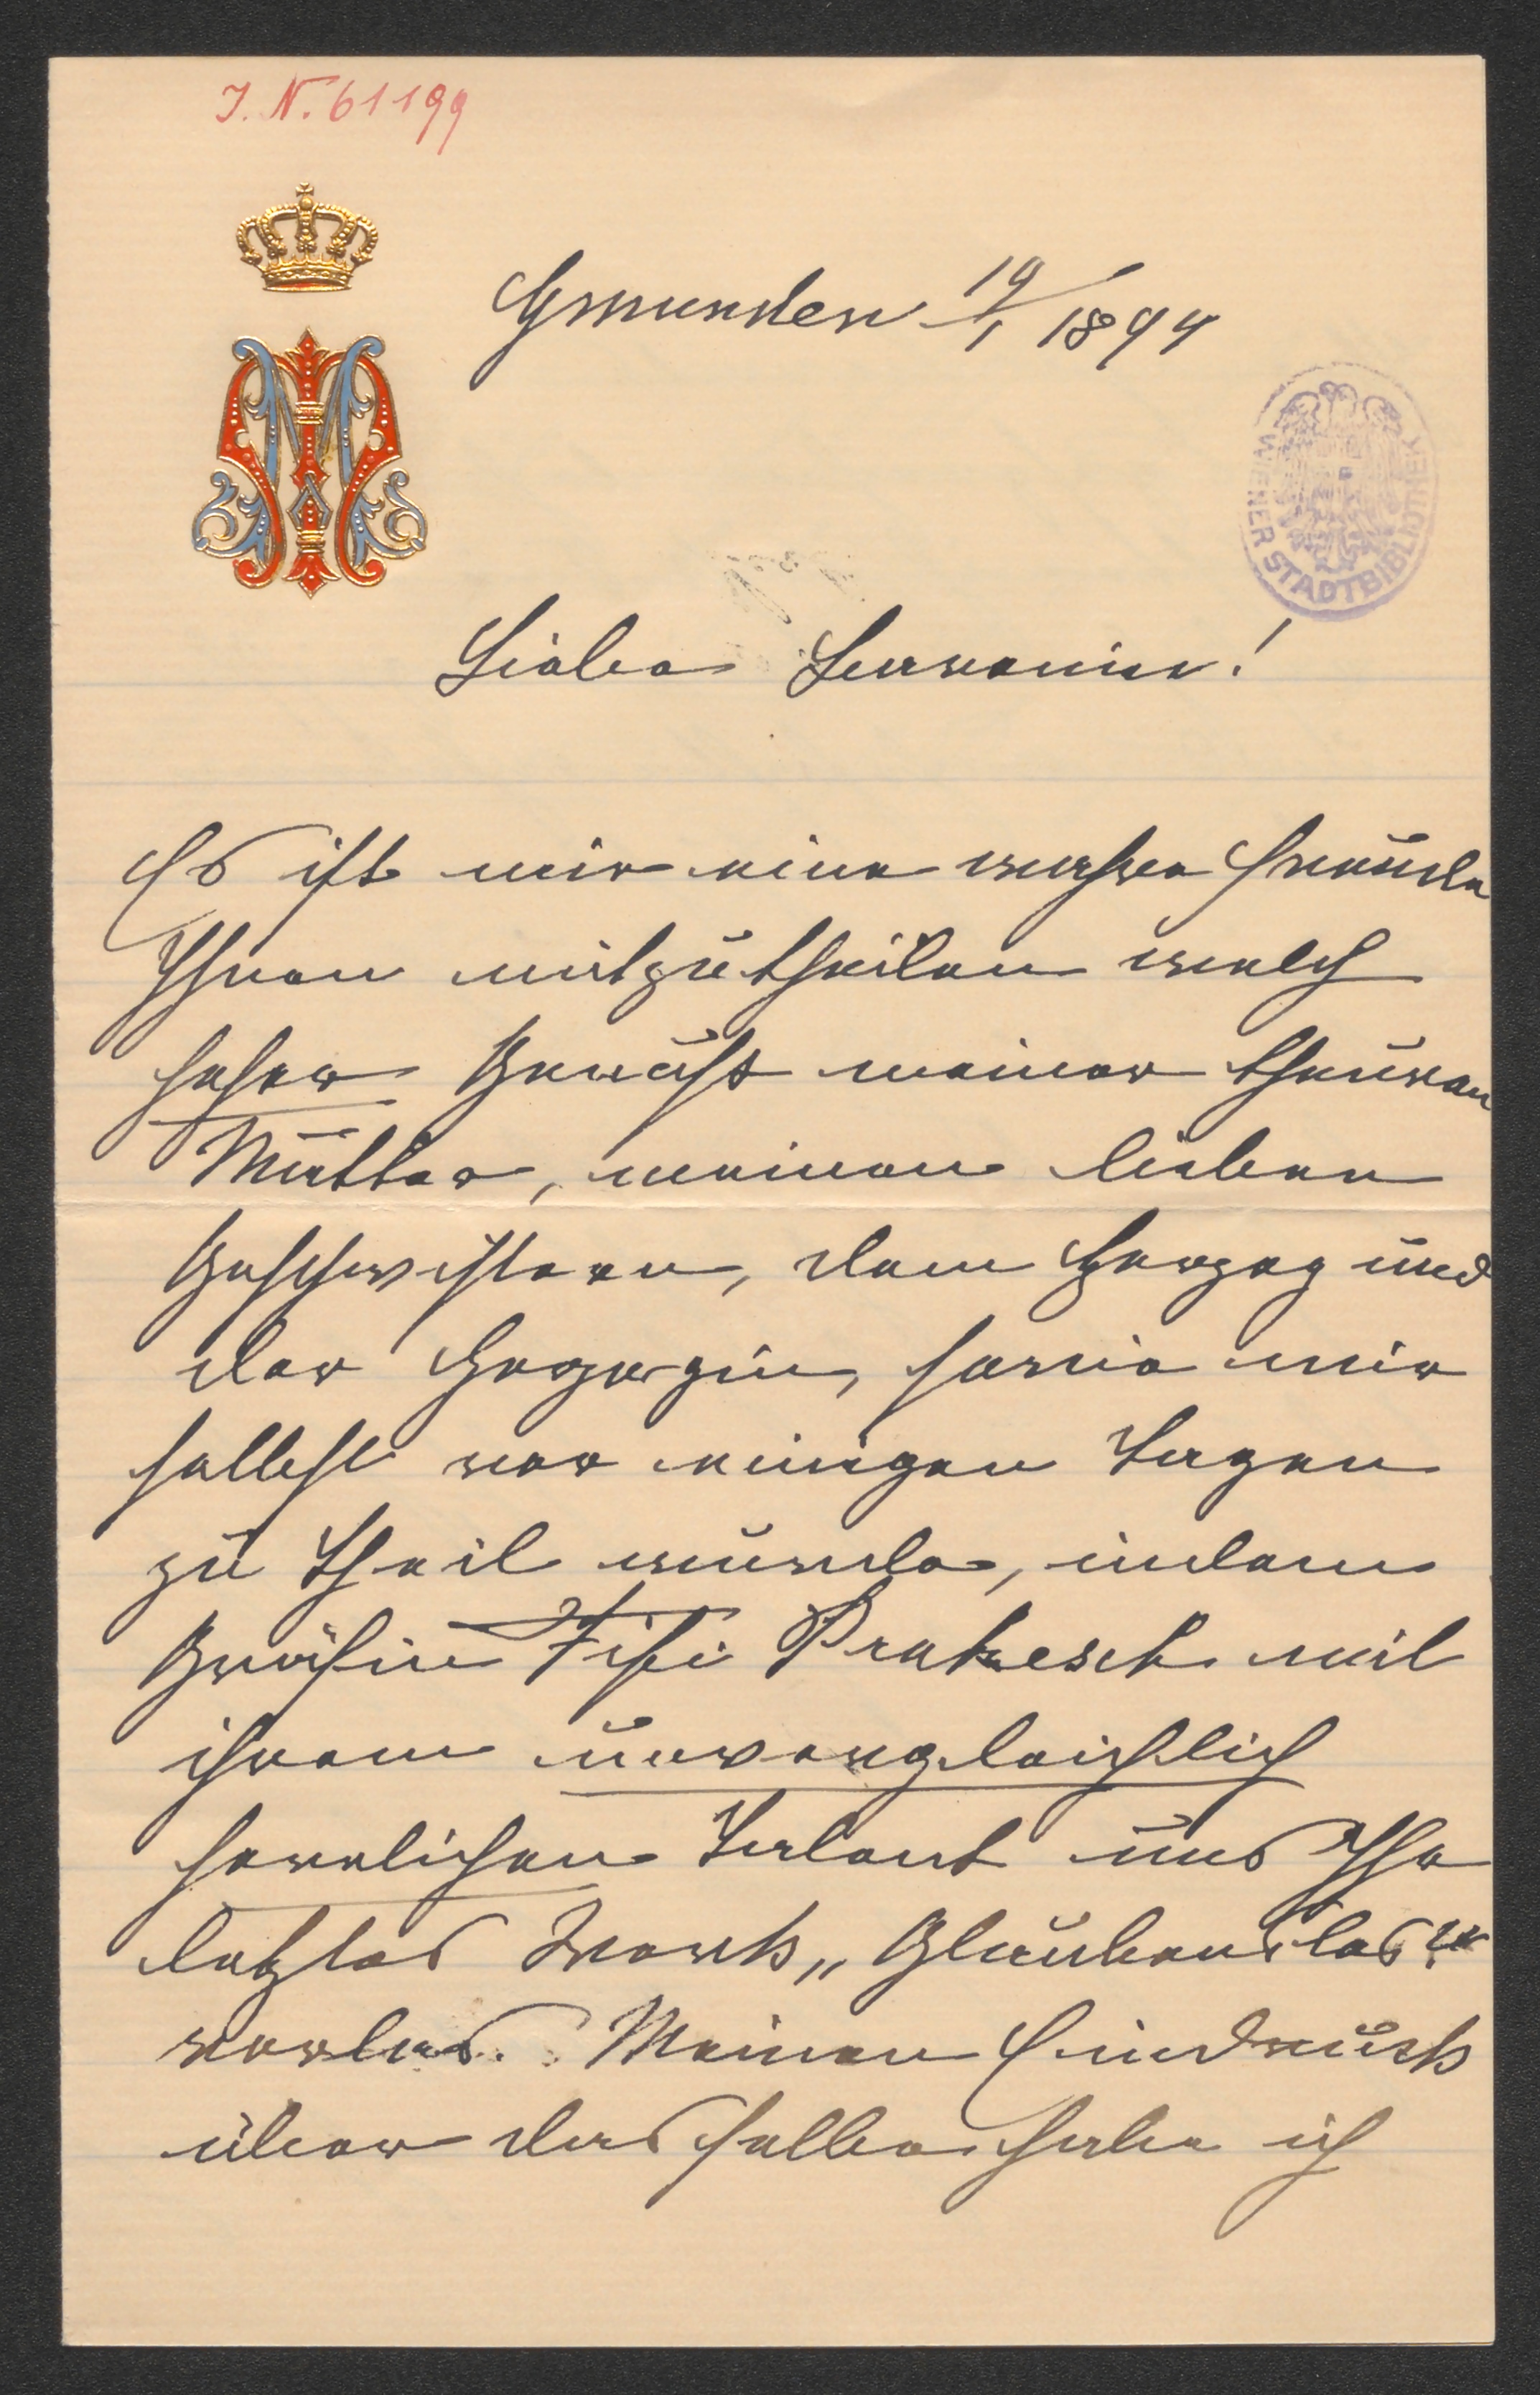 I. N. 61199
Gmunden 19/1 1894
Liebe Baronin!
Es ist mir eine wahre Freude
Ihnen mitzutheilen welch
hoher Genuß meiner theuren
Mutter, meinen lieben
Geschwistern, dem Herzog und
der Herzogin, sowie mir
selbst vor einigen Tagen
zu Theil wurde, indem
Gräfin Fifi Prokesch mit
ihrem unvergleichlich
herrlichen Talent uns Ihr
letztes Werk „Glaubenslos?“
vorlas. Meinen Eindruck
über dasselbe habe ich
WIENER STADTBIBLIOTHEK